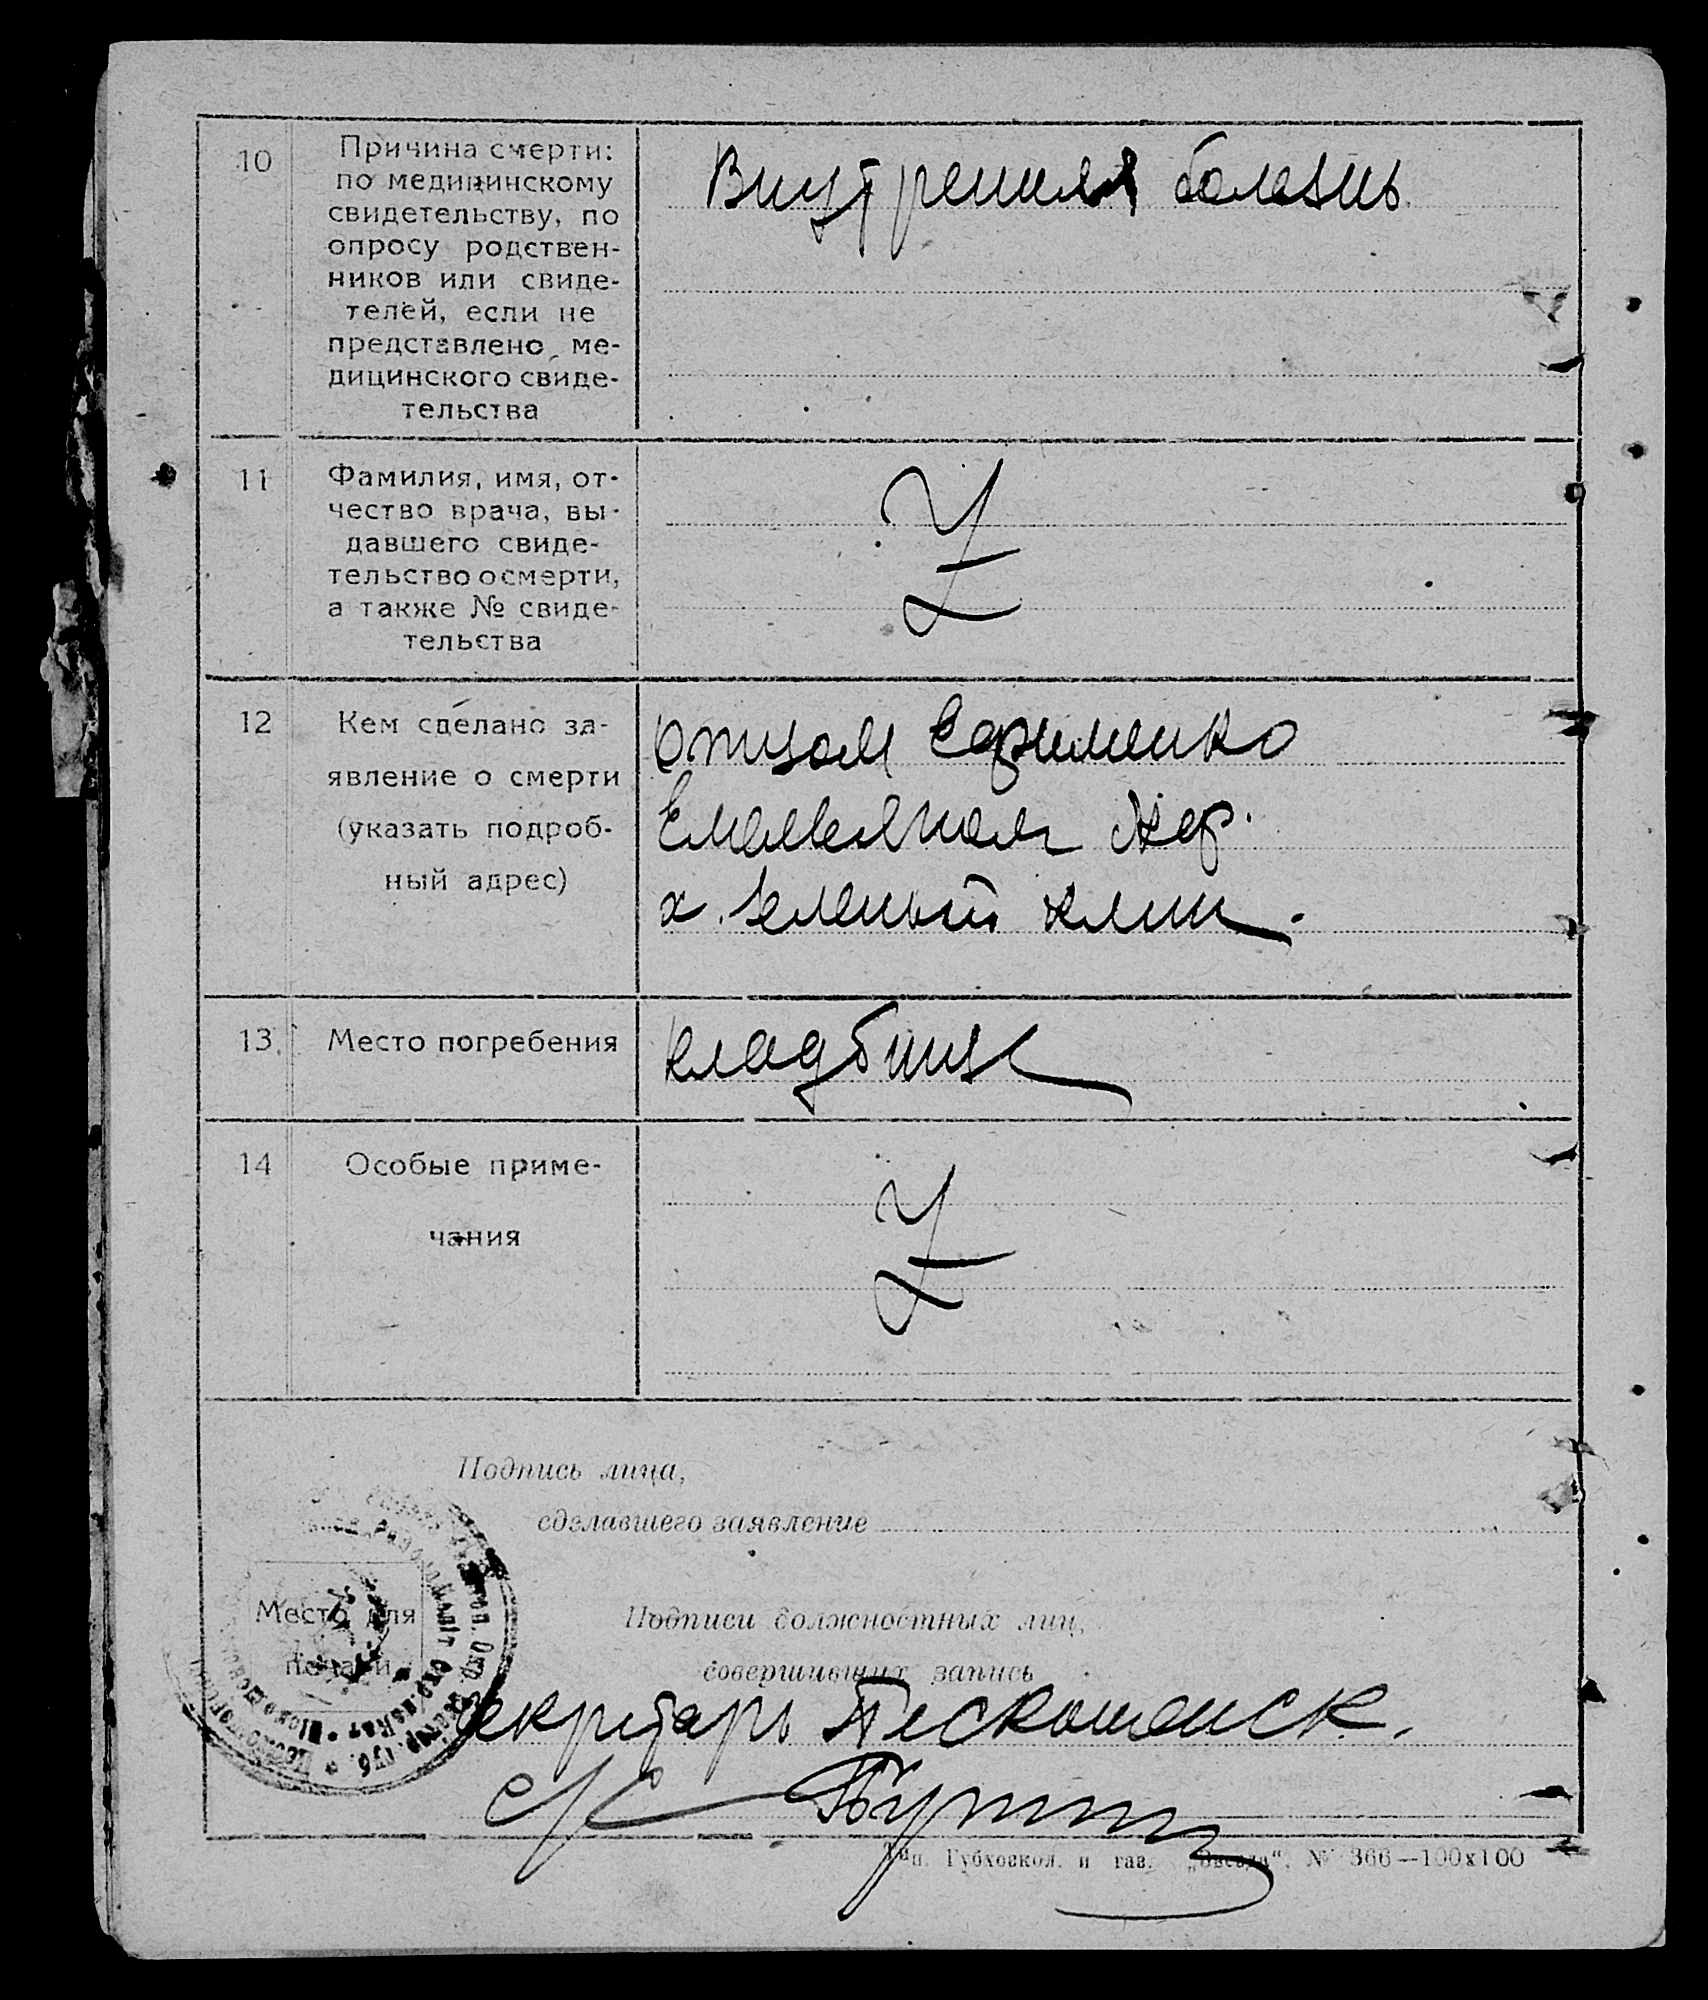 10
Причина смерти:
по медицинскому
свидетельству, по
опросу родствен-
ников или свиде-
телей, если не
представлено ме-
дицинского свиде-
тельства
Внутренняя болезнь
11
Фамилия, имя, от-
чество врача, вы-
давшего свиде-
тельство о смерти,
а также № свиде-
тельства
12
Кем сделано за-
явление о смерти
(указать подроб-
ный адрес)
отцом Ефименко
Емельяном
х. Зеленый клин.
13.
Место погребения
кладбище
14
Особые приме-
чания
Подпись лица,
сделавшего заявление
Место для
печати
Подписи должностных лиц,
совершивших запись
Секретарь
Тип. Губховкол. и газ. „Звезда“. № 366—100х100